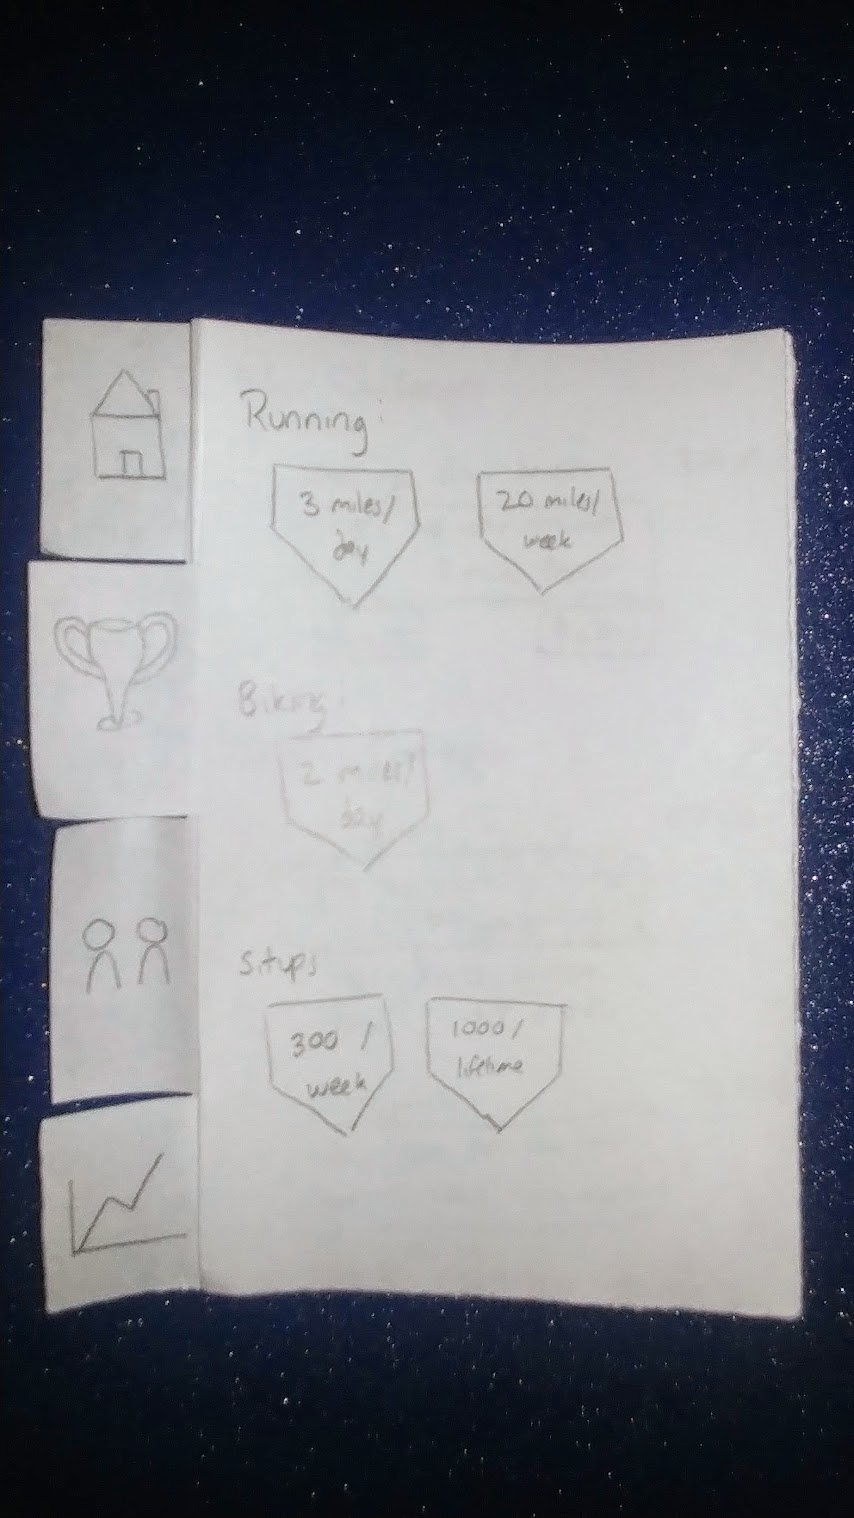 Running:
3 miles/
day
20 miles/
week
Biking:
2 miles/
day
Situps
300 /
week
1000/
lifetime